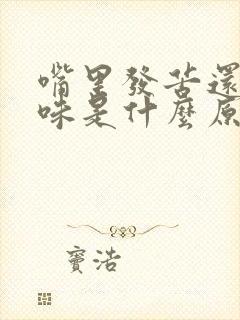 嘴里發苦還
味是什麼原
竇浩